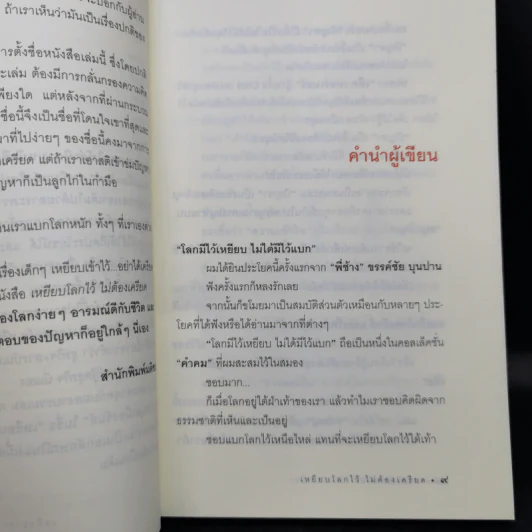 ถ้าเราเห็นว่ามันเป็นเรื่องปกติของ
การตั้งชื่อหนังสือเล่มนี้ ซึ่งโดยปกติ
ะเล่ม ต้องมีการกลั่นกรองความคิด
เพียงใด แต่หลังจากที่ผ่านกระบวน
ชื่อนี้จึงเป็นชื่อที่โดนใจเขาที่สุดและ
าที่ไปง่ายๆ ของชื่อนี้คงมาจากการ
เครียด แต่ถ้าเราอาสติเข้าข่มปัญหา
ญหาก็เป็นลูกไก่ในกำมือ
นเราแบกโลกหนัก ทั้งๆ ที่เราเอง
รื่องเด็กๆ เหยียบเข้าไว้...อย่าได้เครียด
ังสือ เหยียบโลกไว้ ไม่ต้องเครียด
องโลกง่ายๆ อารมณ์ดีกับชีวิต และ
ตอบของปัญหาก็อยู่ใกล้ๆ นี่เอง
สำนักพิมพ์มติชน
คำนำผู้เขียน
"โลกมีไว้เหยียบ ไม่ได้มีไว้แบก"
ผมได้ยินประโยคนี้ครั้งแรกจาก "พี่ช้าง" ขรรค์ชัย บุนปาน
ฟังครั้งแรกก็หลงรักเลย
จากนั้นก็ขโมยมาเป็นสมบัติส่วนตัวเหมือนกับหลายๆ ประ-
โยคที่ได้ฟังหรือได้อ่านมาจากที่ต่างๆ
"โลกมีไว้เหยียบ ไม่ได้มีไว้แบก" ถือเป็นหนึ่งในคอลเล็คชั่น
"คำคม" ที่ผมสะสมไว้ในสมอง
ชอบมาก...
ก็เมื่อโลกอยู่ใต้ฝ่าเท้าของเรา แล้วทำไมเราชอบคิดผิดจาก
ธรรมชาติที่เห็นและเป็นอยู่
ชอบแบกโลกไว้เหนือไหล่ แทนที่จะเหยียบโลกไว้ใต้เท้า
เหยียบโลกไว้ ไม่ต้องเครียด • ๙